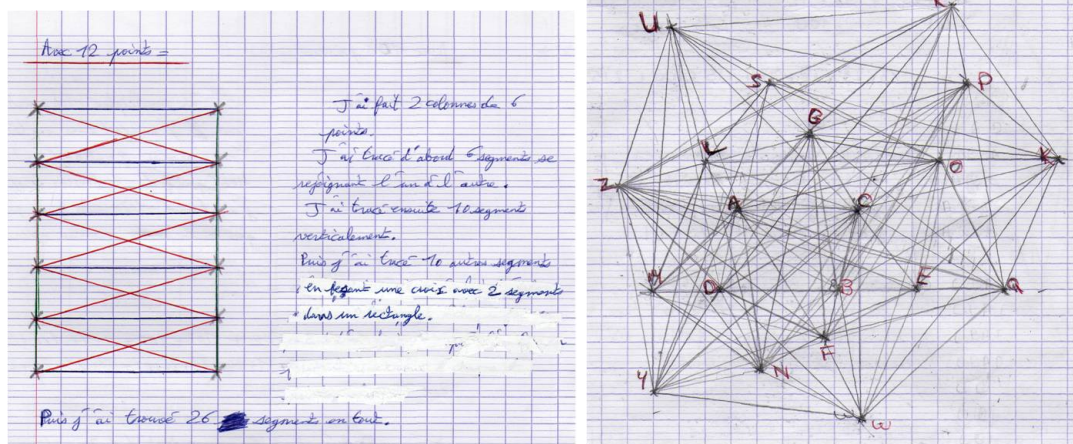 Avec 12 points =
J'ai fait 2 colonnes de 6
points.
J'ai tracé d'abord 6 segments se
rejoignant l'un à l'autre.
J'ai tracé ensuite 10 segments
verticalement.
Puis j'ai tracé 10 autres segments
en fesant une croix avec 2 segments
dans un rectangle.
Puis j'ai trouvé 26 segments en tout.
U
S
P
G
L
O
K
Z
A
C
M
D
B
E
Q
F
Y
N
W
W